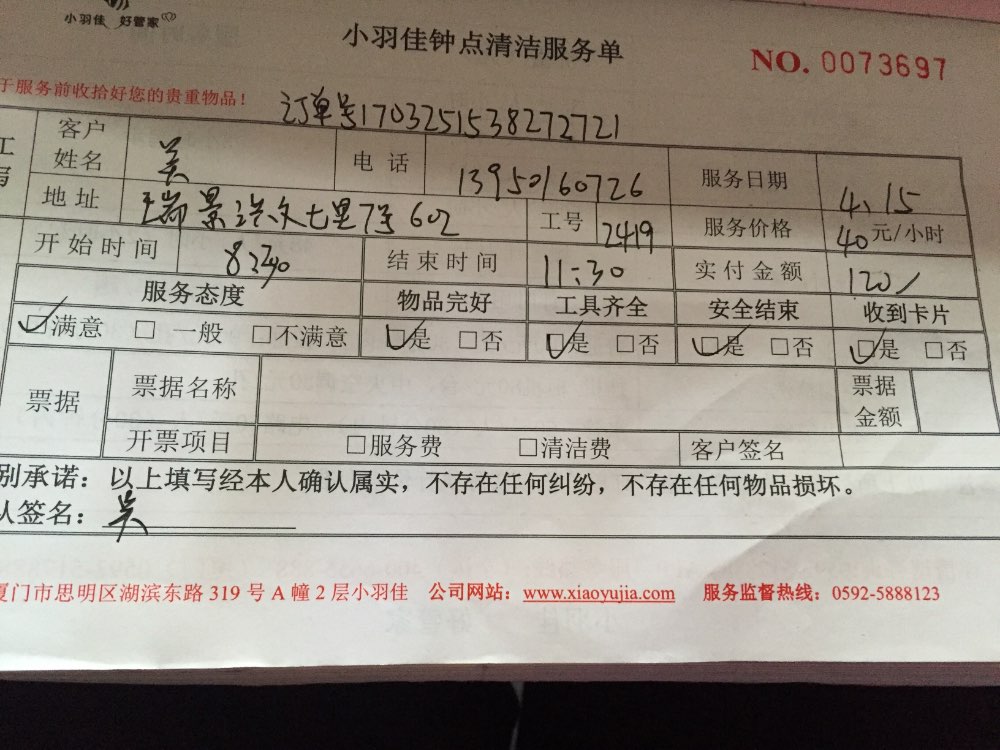 小羽佳 好管家
小羽佳钟点清洁服务单
NO. 0073697
于服务前收拾好您的贵重物品！
订单号1703251538272721
客户姓名 吴 电话 13950160726 服务日期 4.15
地址 瑞景洪文七里7号602 工号 2419 服务价格 40元/小时
开始时间 8:30 结束时间 11:30 实付金额 120/
服务态度 物品完好 工具齐全 安全结束 收到卡片
☑满意 □一般 □不满意 ☑是 □否 ☑是 □否 ☑是 □否 ☑是 □否
票据 票据名称 票据金额
开票项目 □服务费 □清洁费 客户签名
别承诺：以上填写经本人确认属实，不存在任何纠纷，不存在任何物品损坏。
人签名：吴
厦门市思明区湖滨东路 319 号 A 幢 2 层小羽佳 公司网站：www.xiaoyujia.com 服务监督热线：0592-5888123